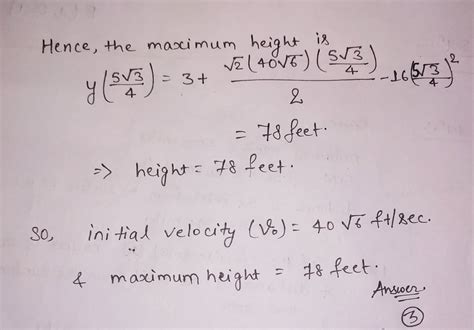 Hence, the maximum height is
y(5√3/4) = 3 + √2(40√6)(5√3/4)/2 - 16(5√3/4)²
= 78 feet.
⇒ height = 78 feet.
So, initial velocity (V₀) = 40√6 ft/sec.
& maximum height = 78 feet.
Answer
③